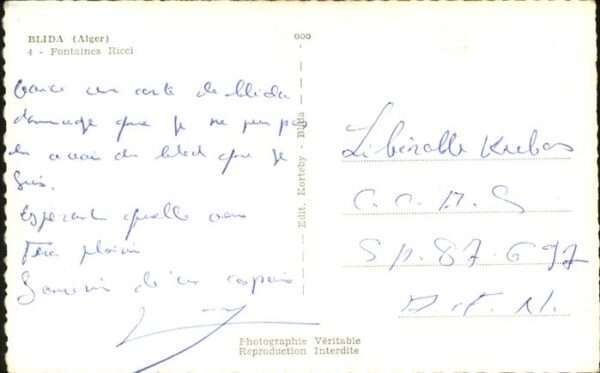 BLIDA (Alger)
4 - Fontaines Ricci
un carte de blida
dommage que je ne peu pas
en avoir du bled que je
suis.
Esperant quelle vous
fera plaisir
Souvenir d'un copain
Edit. Korteby - Blida
000
Libéralle
S P. 87.697
A.F.N.
Photographie Véritable
Reproduction Interdite